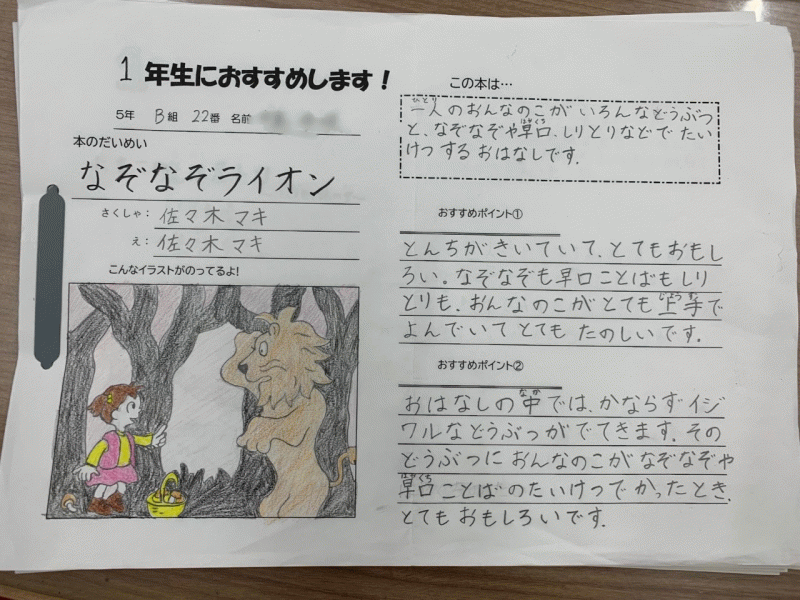 1年生におすすめします!
5年 B組 22番 名前
本のだいめい
なぞなぞライオン
さくしゃ: 佐々木 マキ
え: 佐々木 マキ
こんなイラストがのってるよ!
この本は…
一人のおんなのこが いろんなどうぶつ
と、なぞなぞや早口、しりとりなどで たい
けつ する おはなしです.
おすすめポイント①
とんちがきいていて、とてもおもし
ろい。なぞなぞも早口ことばもしり
とりも、おんなのこがとても上手で
よんでいて とても たのしいです.
おすすめポイント②
おはなしの中では、かならずイジ
ワルなどうぶつがでてきます. その
どうぶつに おんなのこが なぞなぞや
早口ことばのたいけつで かったとき、
とても おもしろいです.